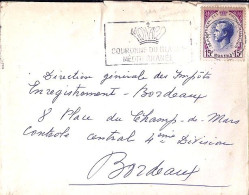 COURONNE DU
MEDITERRANEE
15F 15F
Direction générale des Impôts
Enregistrement - Bordeaux
8 Place du Champ-de-Mars
Contrôle central 4ème Division
Bordeaux